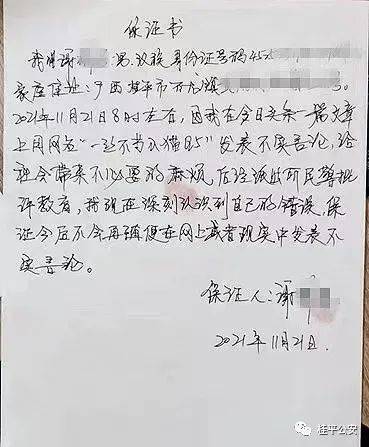 保证书
我叫谢 男、汉族 身份证号码45
家庭住址：广西桂平市
2021年11月21日8时左右，因我在今日头条一篇文章
上用网名“一丝不苟小猫 ”发表不实言论，给
社会带来不必要的麻烦，后经派出所民警批
评教育，我现在深刻认识到自己的错误，保
证今后不会再随便在网上或者现实中发表不
实言论。
保证人：谢
2021年11月21日
桂平公安